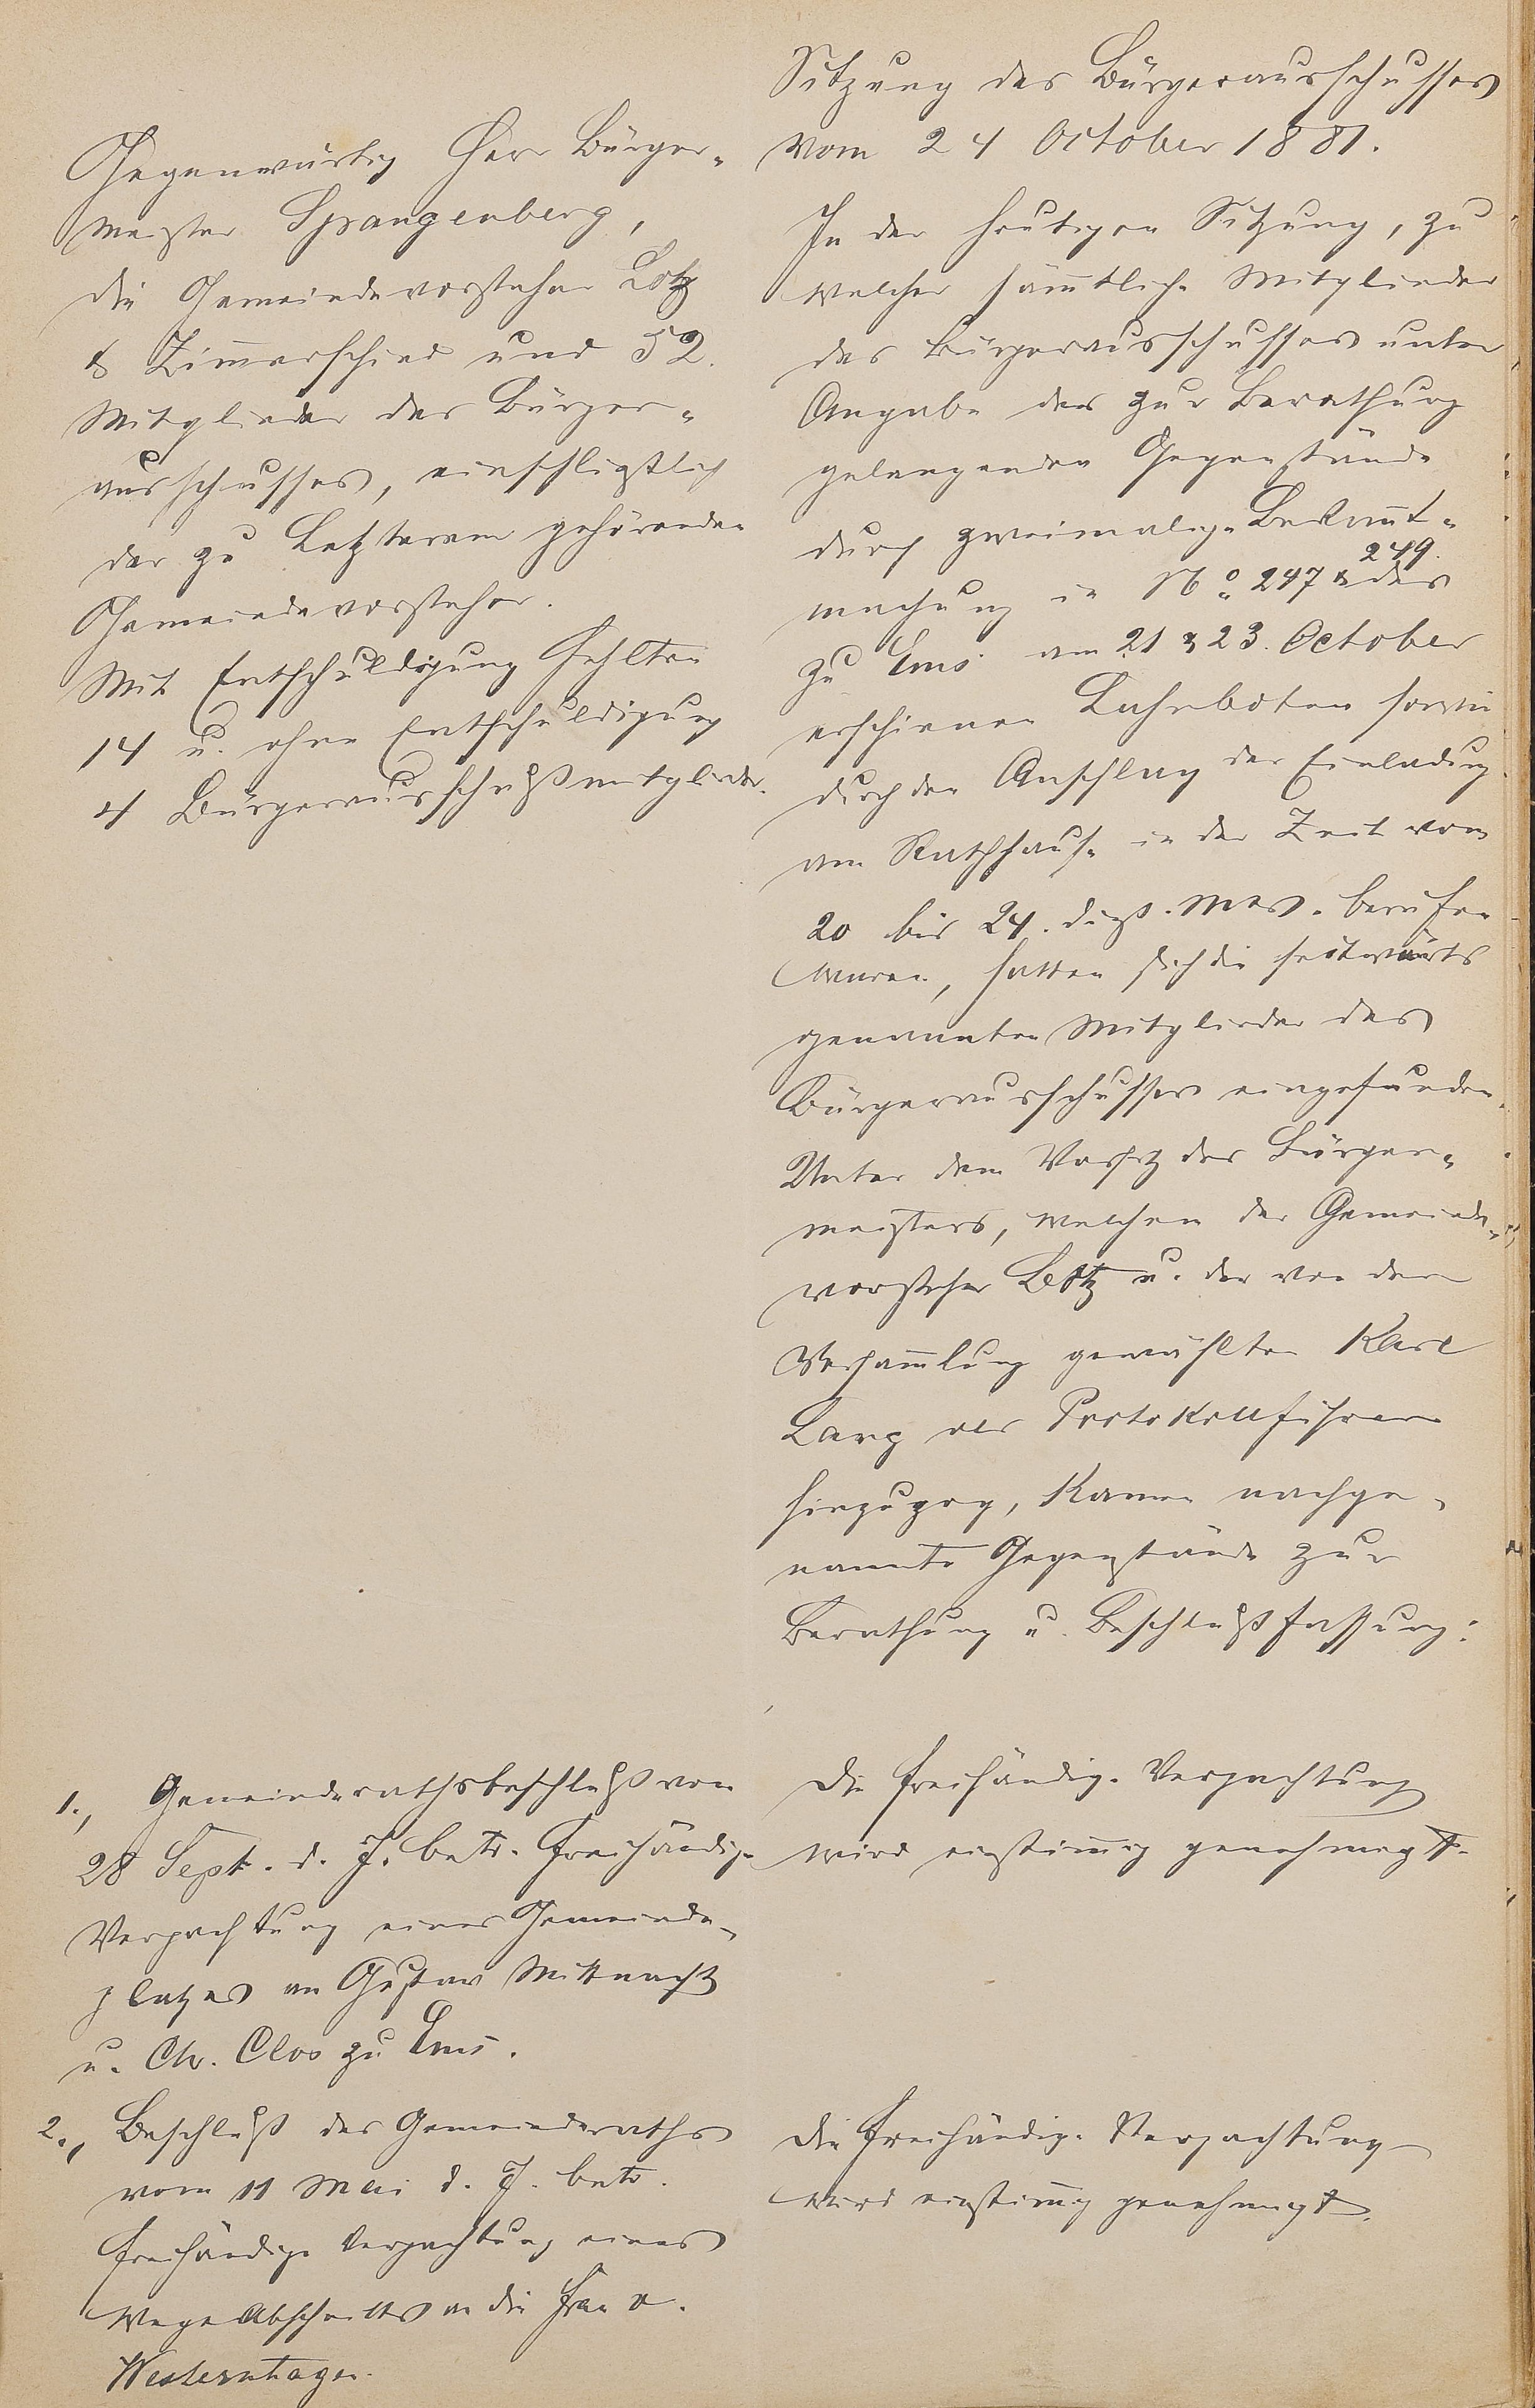 Sitzung des Bürgerausschusses
vom 24 October 1881.
Gegenwärtig Herr Bürger-
meister Spangenberg,
die Gemeindevorsteher Lotz
& Zimmerschied und 52.
Mitglieder des Bürger-
ausschusses, einschließlich
der zu Letzterem gehörenden
Gemeindevorsteher.
Mit Entschuldigung fehlten
14 u. ohne Entschuldigung
4 Bürgerausschußmitglieder.
In der heutigen Sitzung, zu
welcher sämmtliche Mitglieder
des Bürgerausschusses unter
Angabe der zur Berathung
gelangenden Gegenstände
durch zweimalige Bekannt-
machung in No. 247 & 249. des
zu Ems am 21 & 23. October
erschienen Lahnboten sowie
durch den Anschlag der Einladung
am Rathhause in der Zeit vom
20 bis 24. dieß. Mos. berufen
waren, hatten sich die seitwärts
genannten Mitglieder des
Bürgerausschusses eingefunden.
Unter dem Vorsitz des Bürger-
meisters, welchem der Gemeinde-
vorsteher Lotz u. der von der
Versammlung gewählte Karl
Lang als Protokollführer
hinzuzog, kamen nachge-
nannte Gegenstände zur
Berathung u. Beschlußfassung:
1., Gemeinderathsbeschluß vom
28 Sept. d. J. betr. freihändige
Verpachtung eines Gemeinde-
platzes an Gustav Mittnacht
u. Chr. Clos zu Ems.
Die freihändige Verpachtung
wird einstimmig genehmigt.
2., Beschluß des Gemeinderaths
vom 11 Mai d. J. betr.
freihändige Verpachtung eines
Wegeabschnitts an die Frau v.
Westernhagen.
Die freihändige Verpachtung
wird einstimmig genehmigt.